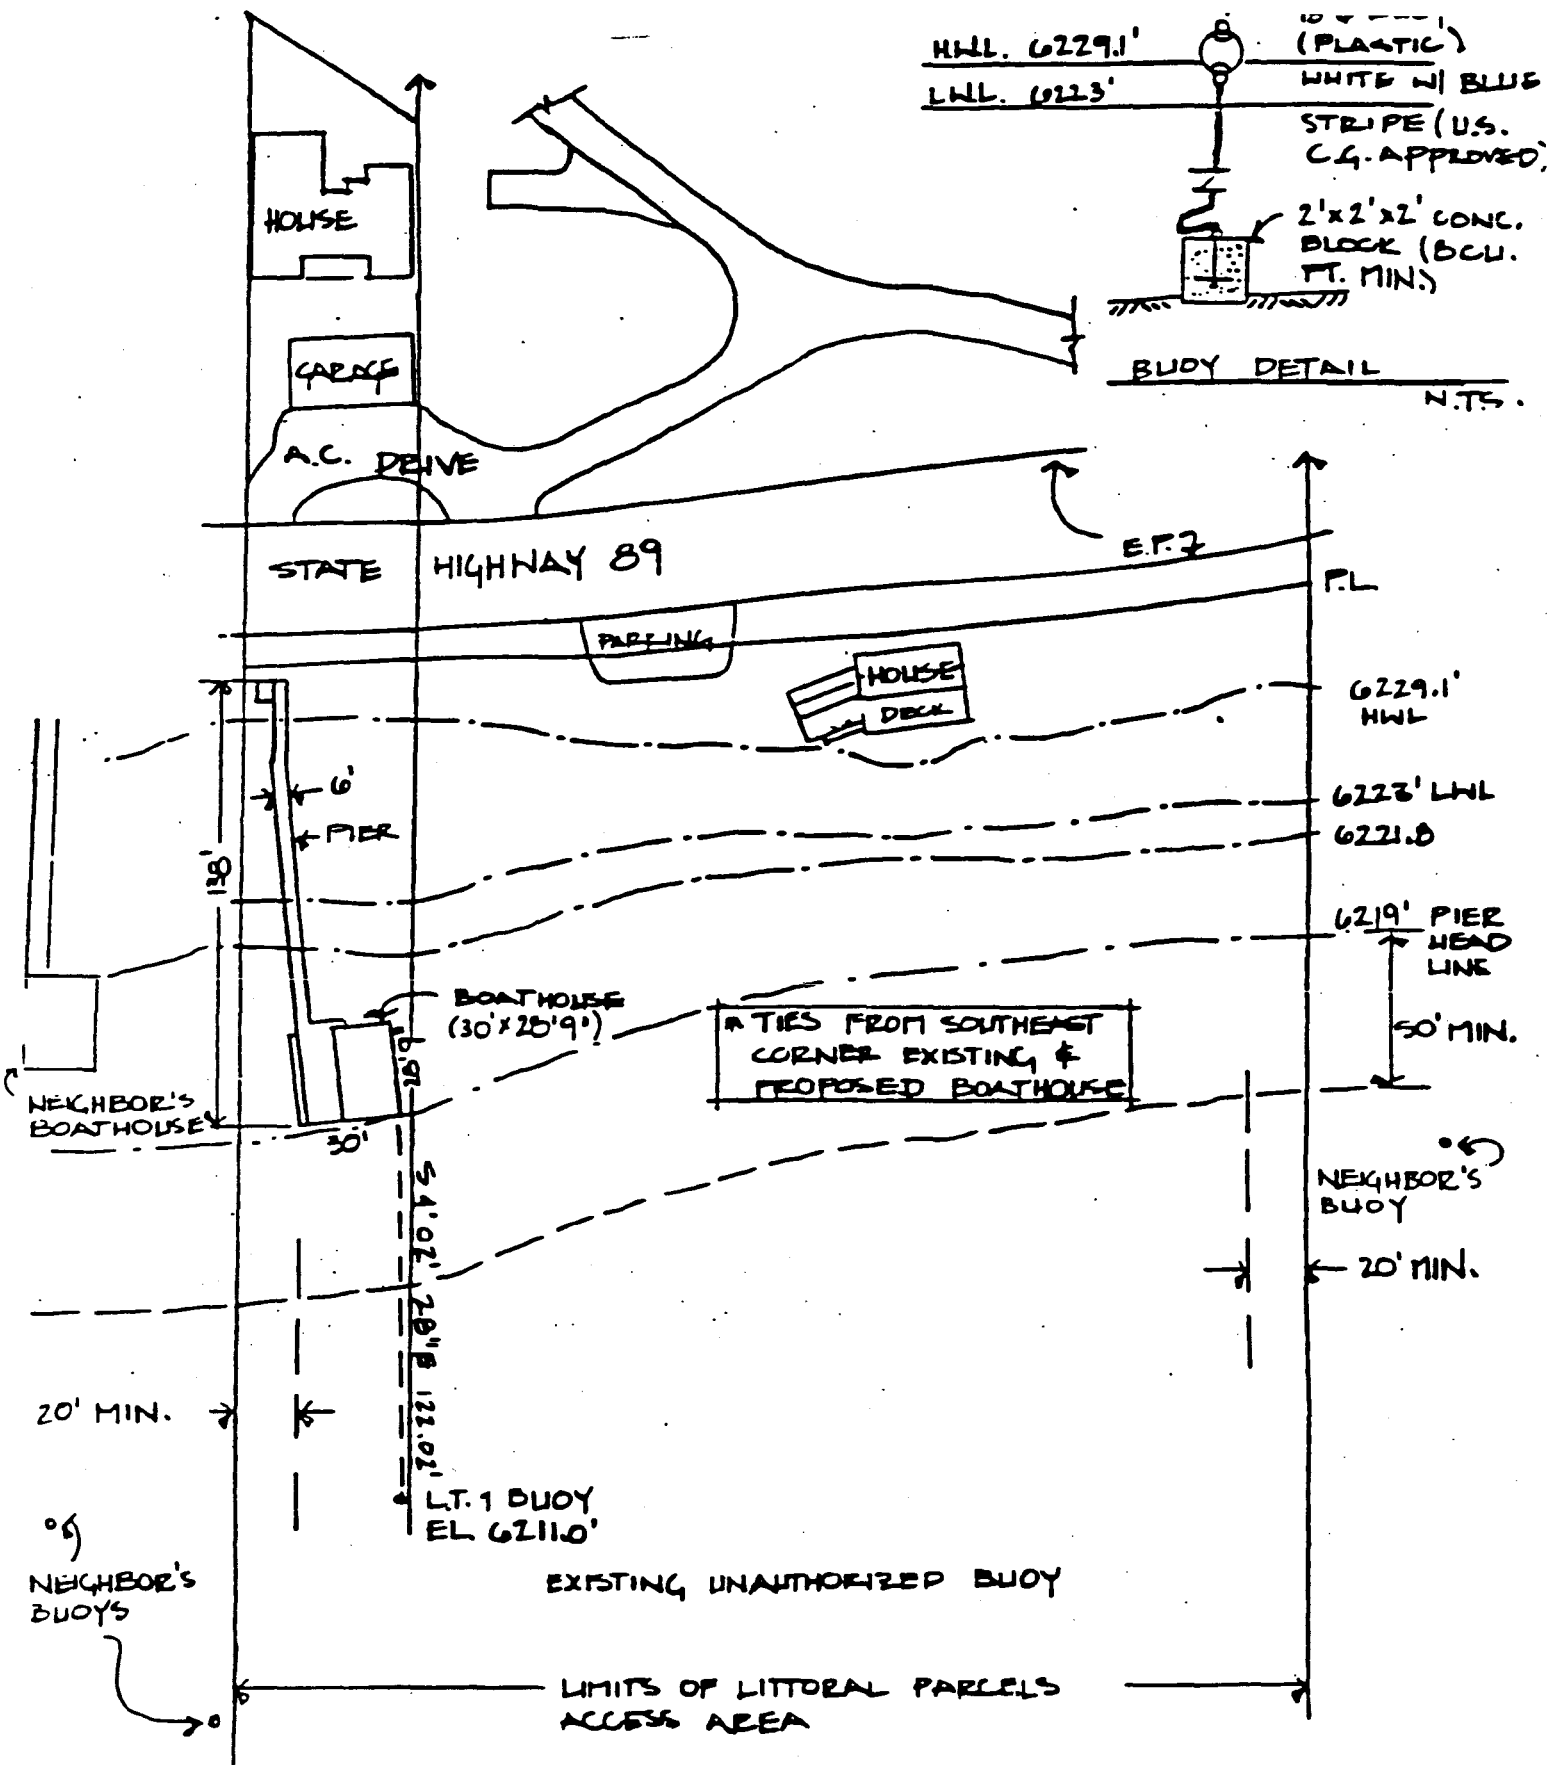 HWL. 6229.1'
LWL. 6223'
(PLASTIC)
WHITE W/ BLUE
STRIPE (U.S.
C.G. APPROVED)
2'x2'x2' CONC.
BLOCK (8CU.
FT. MIN.)
BUOY DETAIL
N.T.S.
HOUSE
GARAGE
A.C. DRIVE
STATE HIGHWAY 89
E.P.
P.L.
PARKING
HOUSE
DECK
6229.1'
HWL
6'
6223' LWL
PIER
6221.8
138'
6219' PIER
HEAD
LINE
BOATHOUSE
(30'x28'9")
* TIES FROM SOUTHEAST
CORNER EXISTING &
PROPOSED BOATHOUSE
50' MIN.
NEIGHBOR'S
BOATHOUSE
30'
NEIGHBOR'S
BUOY
S 4° 02' 28"E 122.02'
20' MIN.
20' MIN.
L.T. 1 BUOY
EL. 6211.0'
NEIGHBOR'S
BUOYS
EXISTING UNAUTHORIZED BUOY
LIMITS OF LITTORAL PARCELS
ACCESS AREA